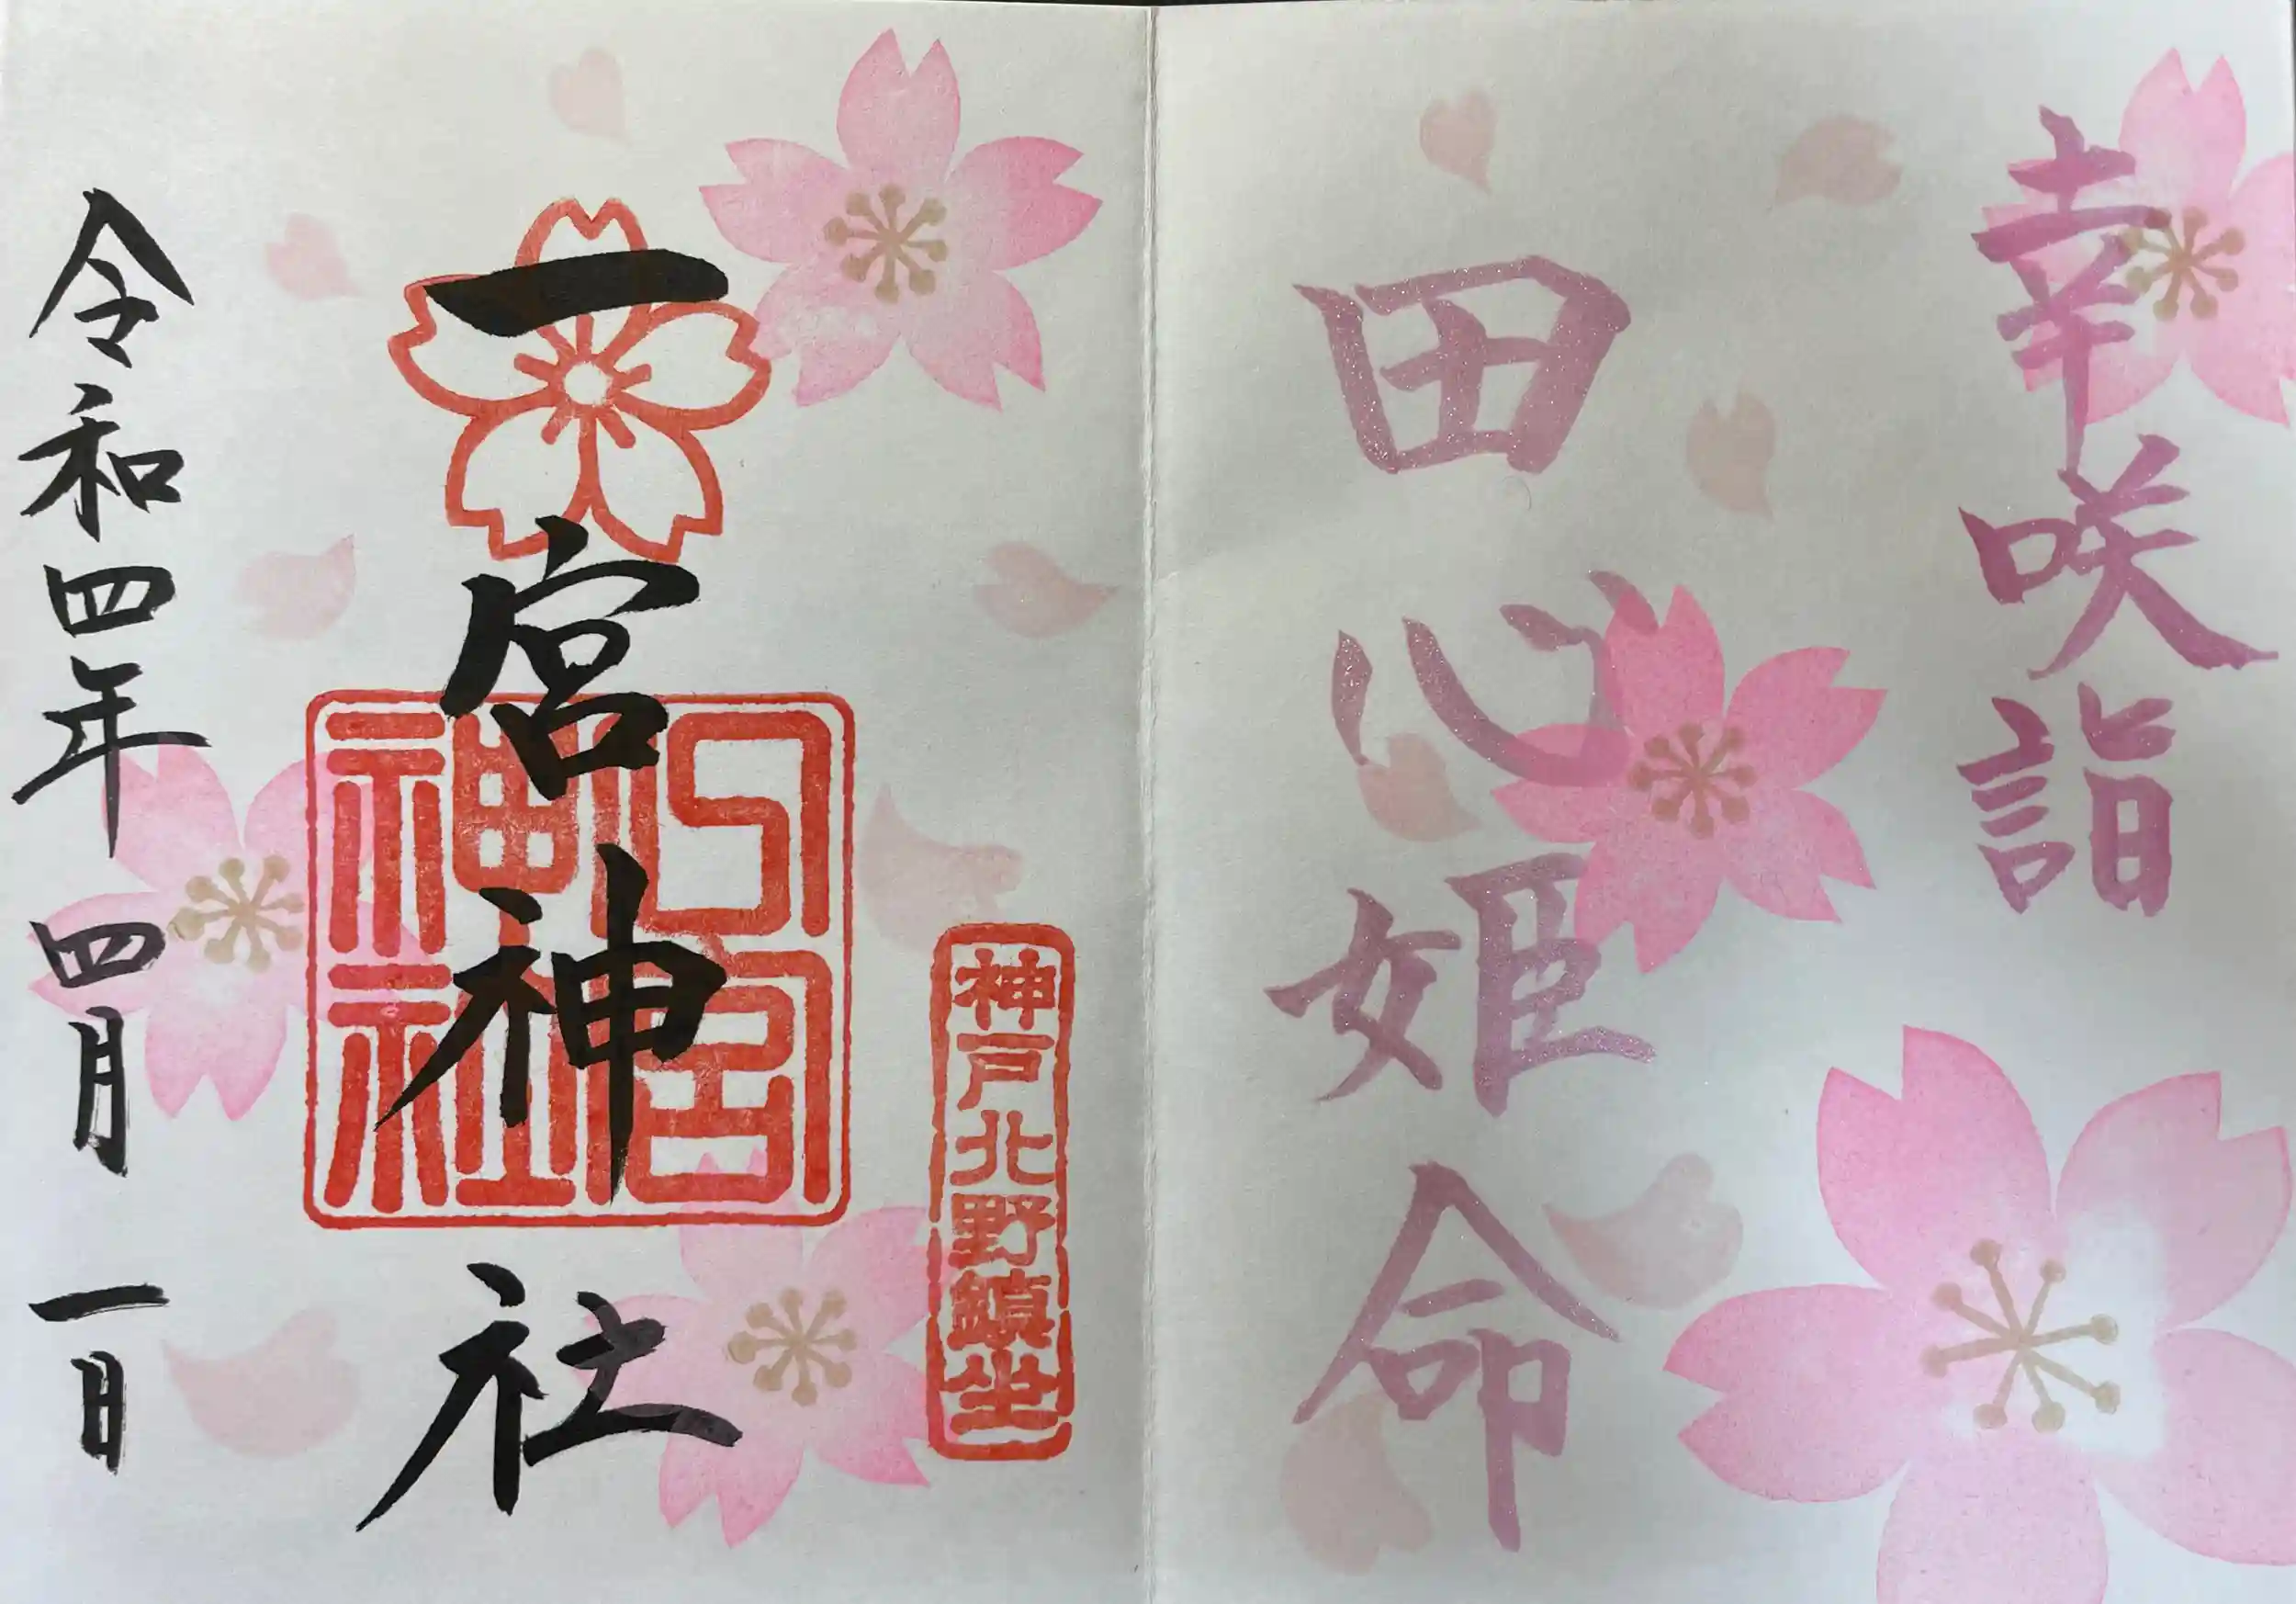 幸咲詣
田心姫命
神戸北野鎮坐
一宮神社
一宮神社
令和四年四月一日